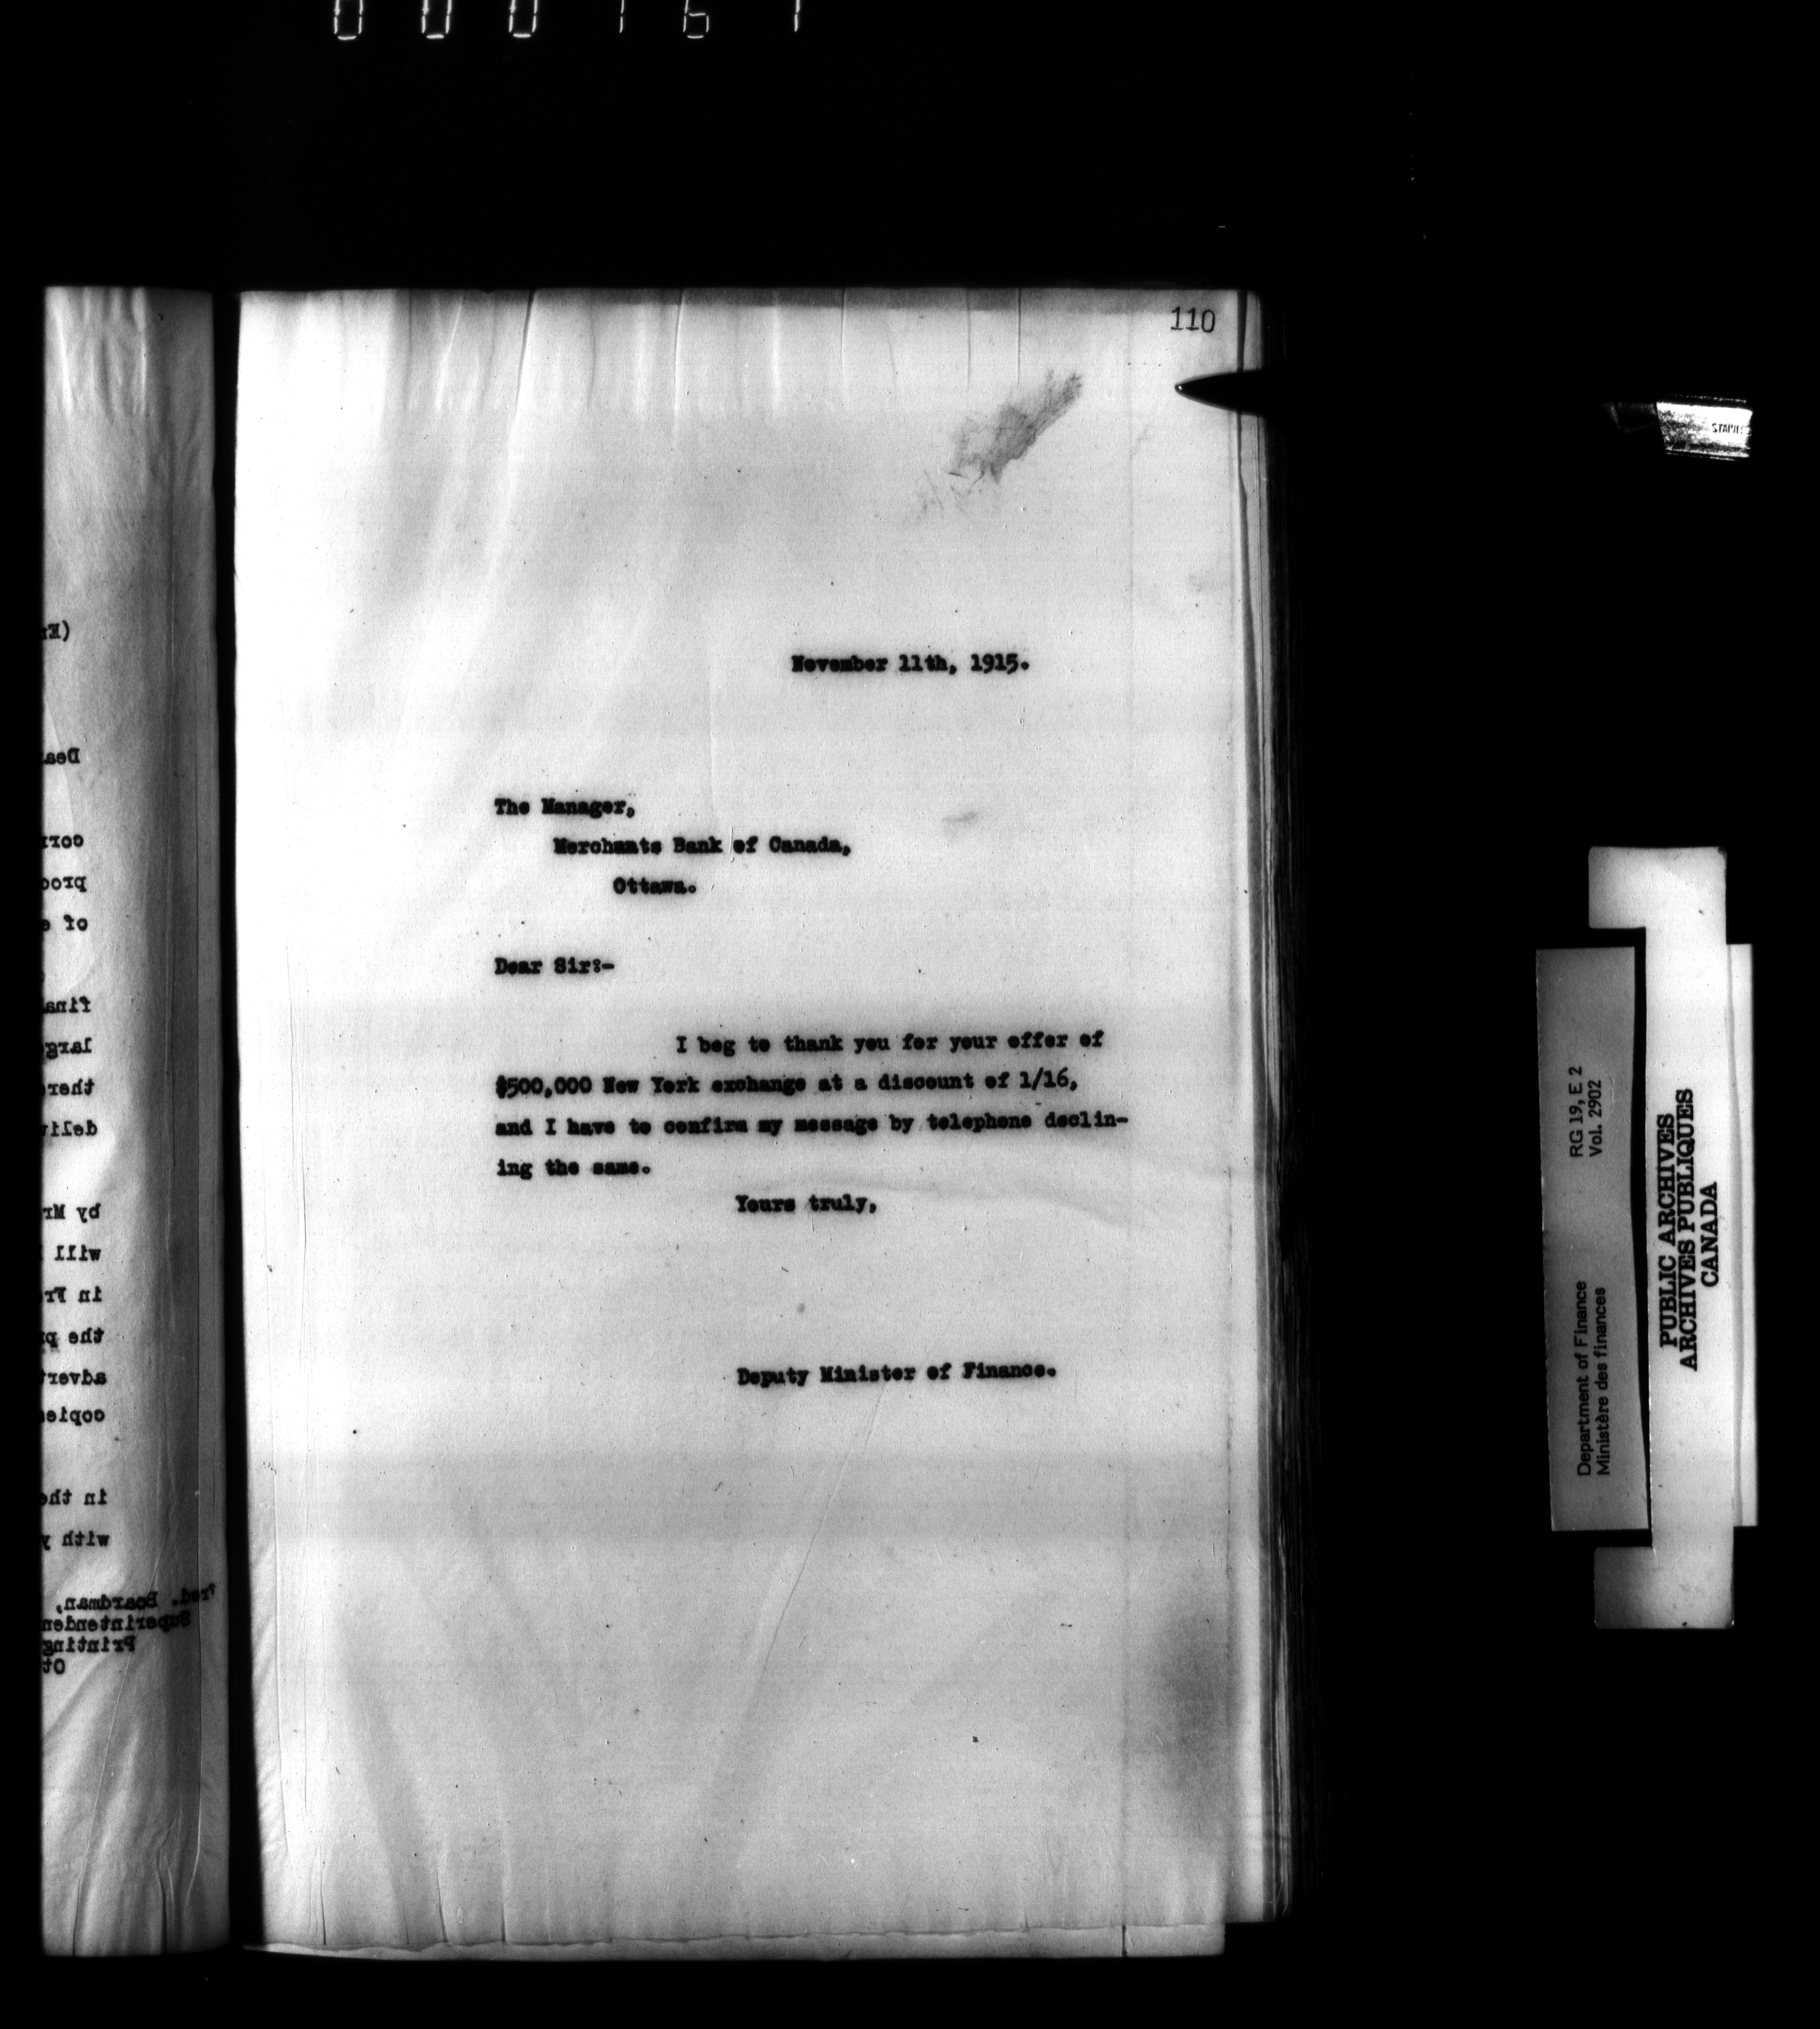 110
November 11th, 1915.
The Manager,
Merchants Bank of Canada,
Ottawa.
Dear Sir:-
I beg to thank you for your offer of
$500,000 New York exchange at a discount of 1/16,
and I have to confirm my message by telephone declin-
ing the same.
Yours truly,
Deputy Minister of Finance.
STANLEY
RG 19, E 2
Vol. 2902
Department of Finance
Ministère des finances
PUBLIC ARCHIVES
ARCHIVES PUBLIQUES
CANADA